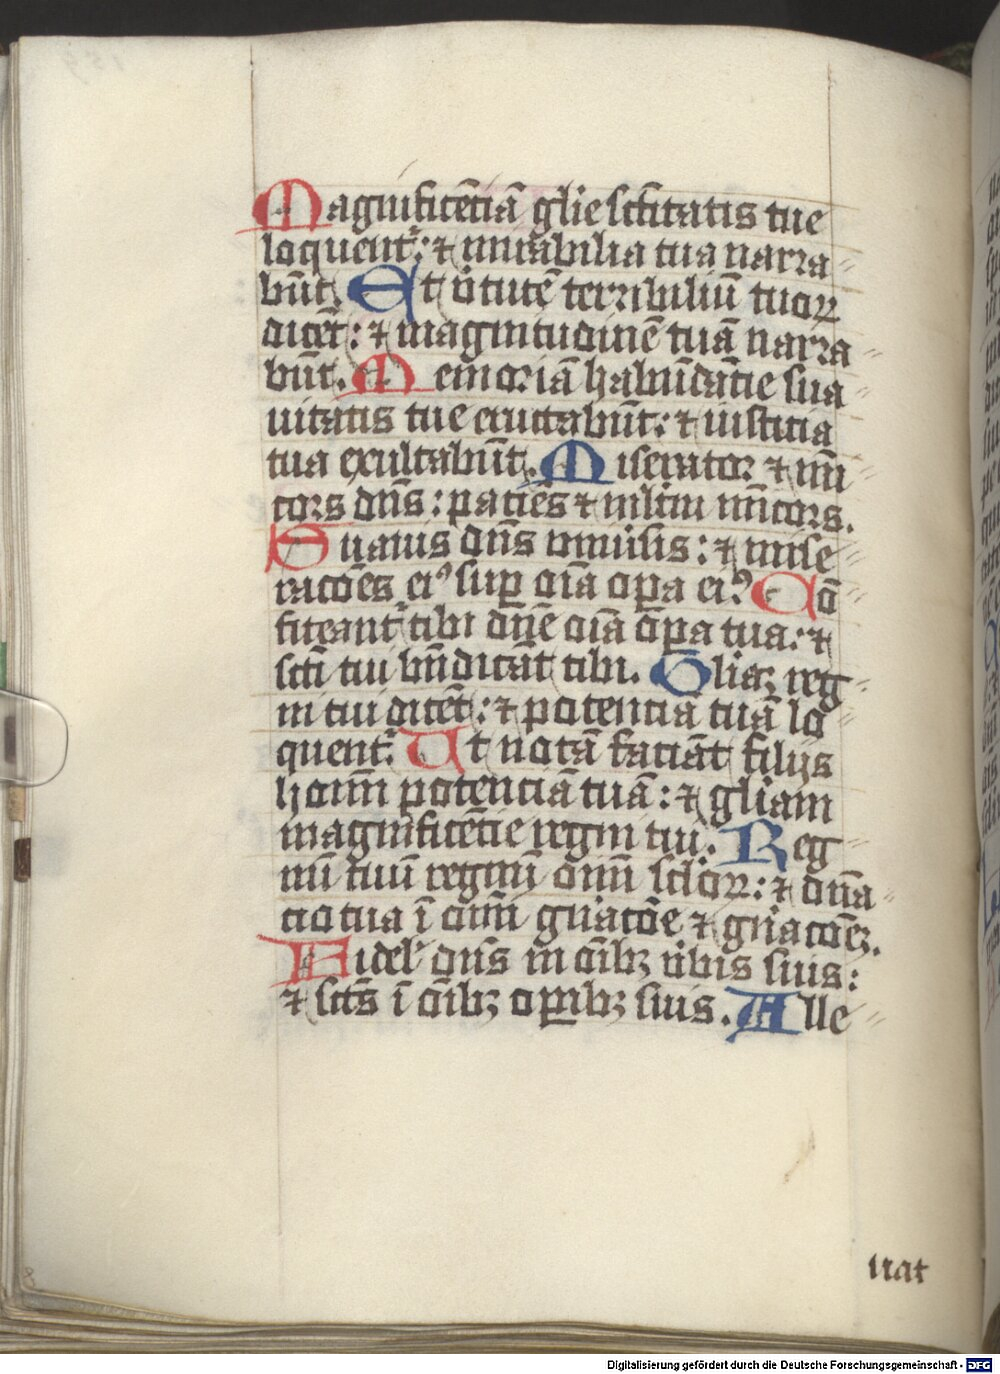 Magnificēciā glīe sctītatis tue
loquent᷑: ⁊ mirabilia tua narra
būt. Et v̾tutē terribiliū tuoꝝ
dicēt: ⁊ magnitudinē tuā narra
būt. Memoriā habūdātie sua
uitatis tue eructabūt: ⁊ iusticia
tua exultabūt. Miserator ⁊ mi
cors dn̄s: paciēs ⁊ mltū mīcors.
Suauis dn̄s vniūsis: ⁊ mise
racōes eiꝰ sup̄ oīa oꝑa eiꝰ. Cō
fiteant᷑ tibi dn̄e oīa oꝑa tua: ⁊
scī tui bn̄dicāt tibi. Glīaꝫ reg
ni tui dicēt: ⁊ potenciā tuā lo
quent᷑. Ut notā faciāt filijs
hoīm potenciā tuā: ⁊ gliam
magnificēcie regni tui. Reg
nū tuū regnū oīm sclōꝝ: ⁊ dn̄a
tio tua ī oīm gn̄acōe ⁊ gn̄acōeꝫ.
Fidel̓ dn̄s in oībꝫ v̾bis suis:
⁊ scūs ī oībꝫ oꝑibꝫ suis. Alle
uat
Digitalisierung gefördert durch die Deutsche Forschungsgemeinschaft - DFG